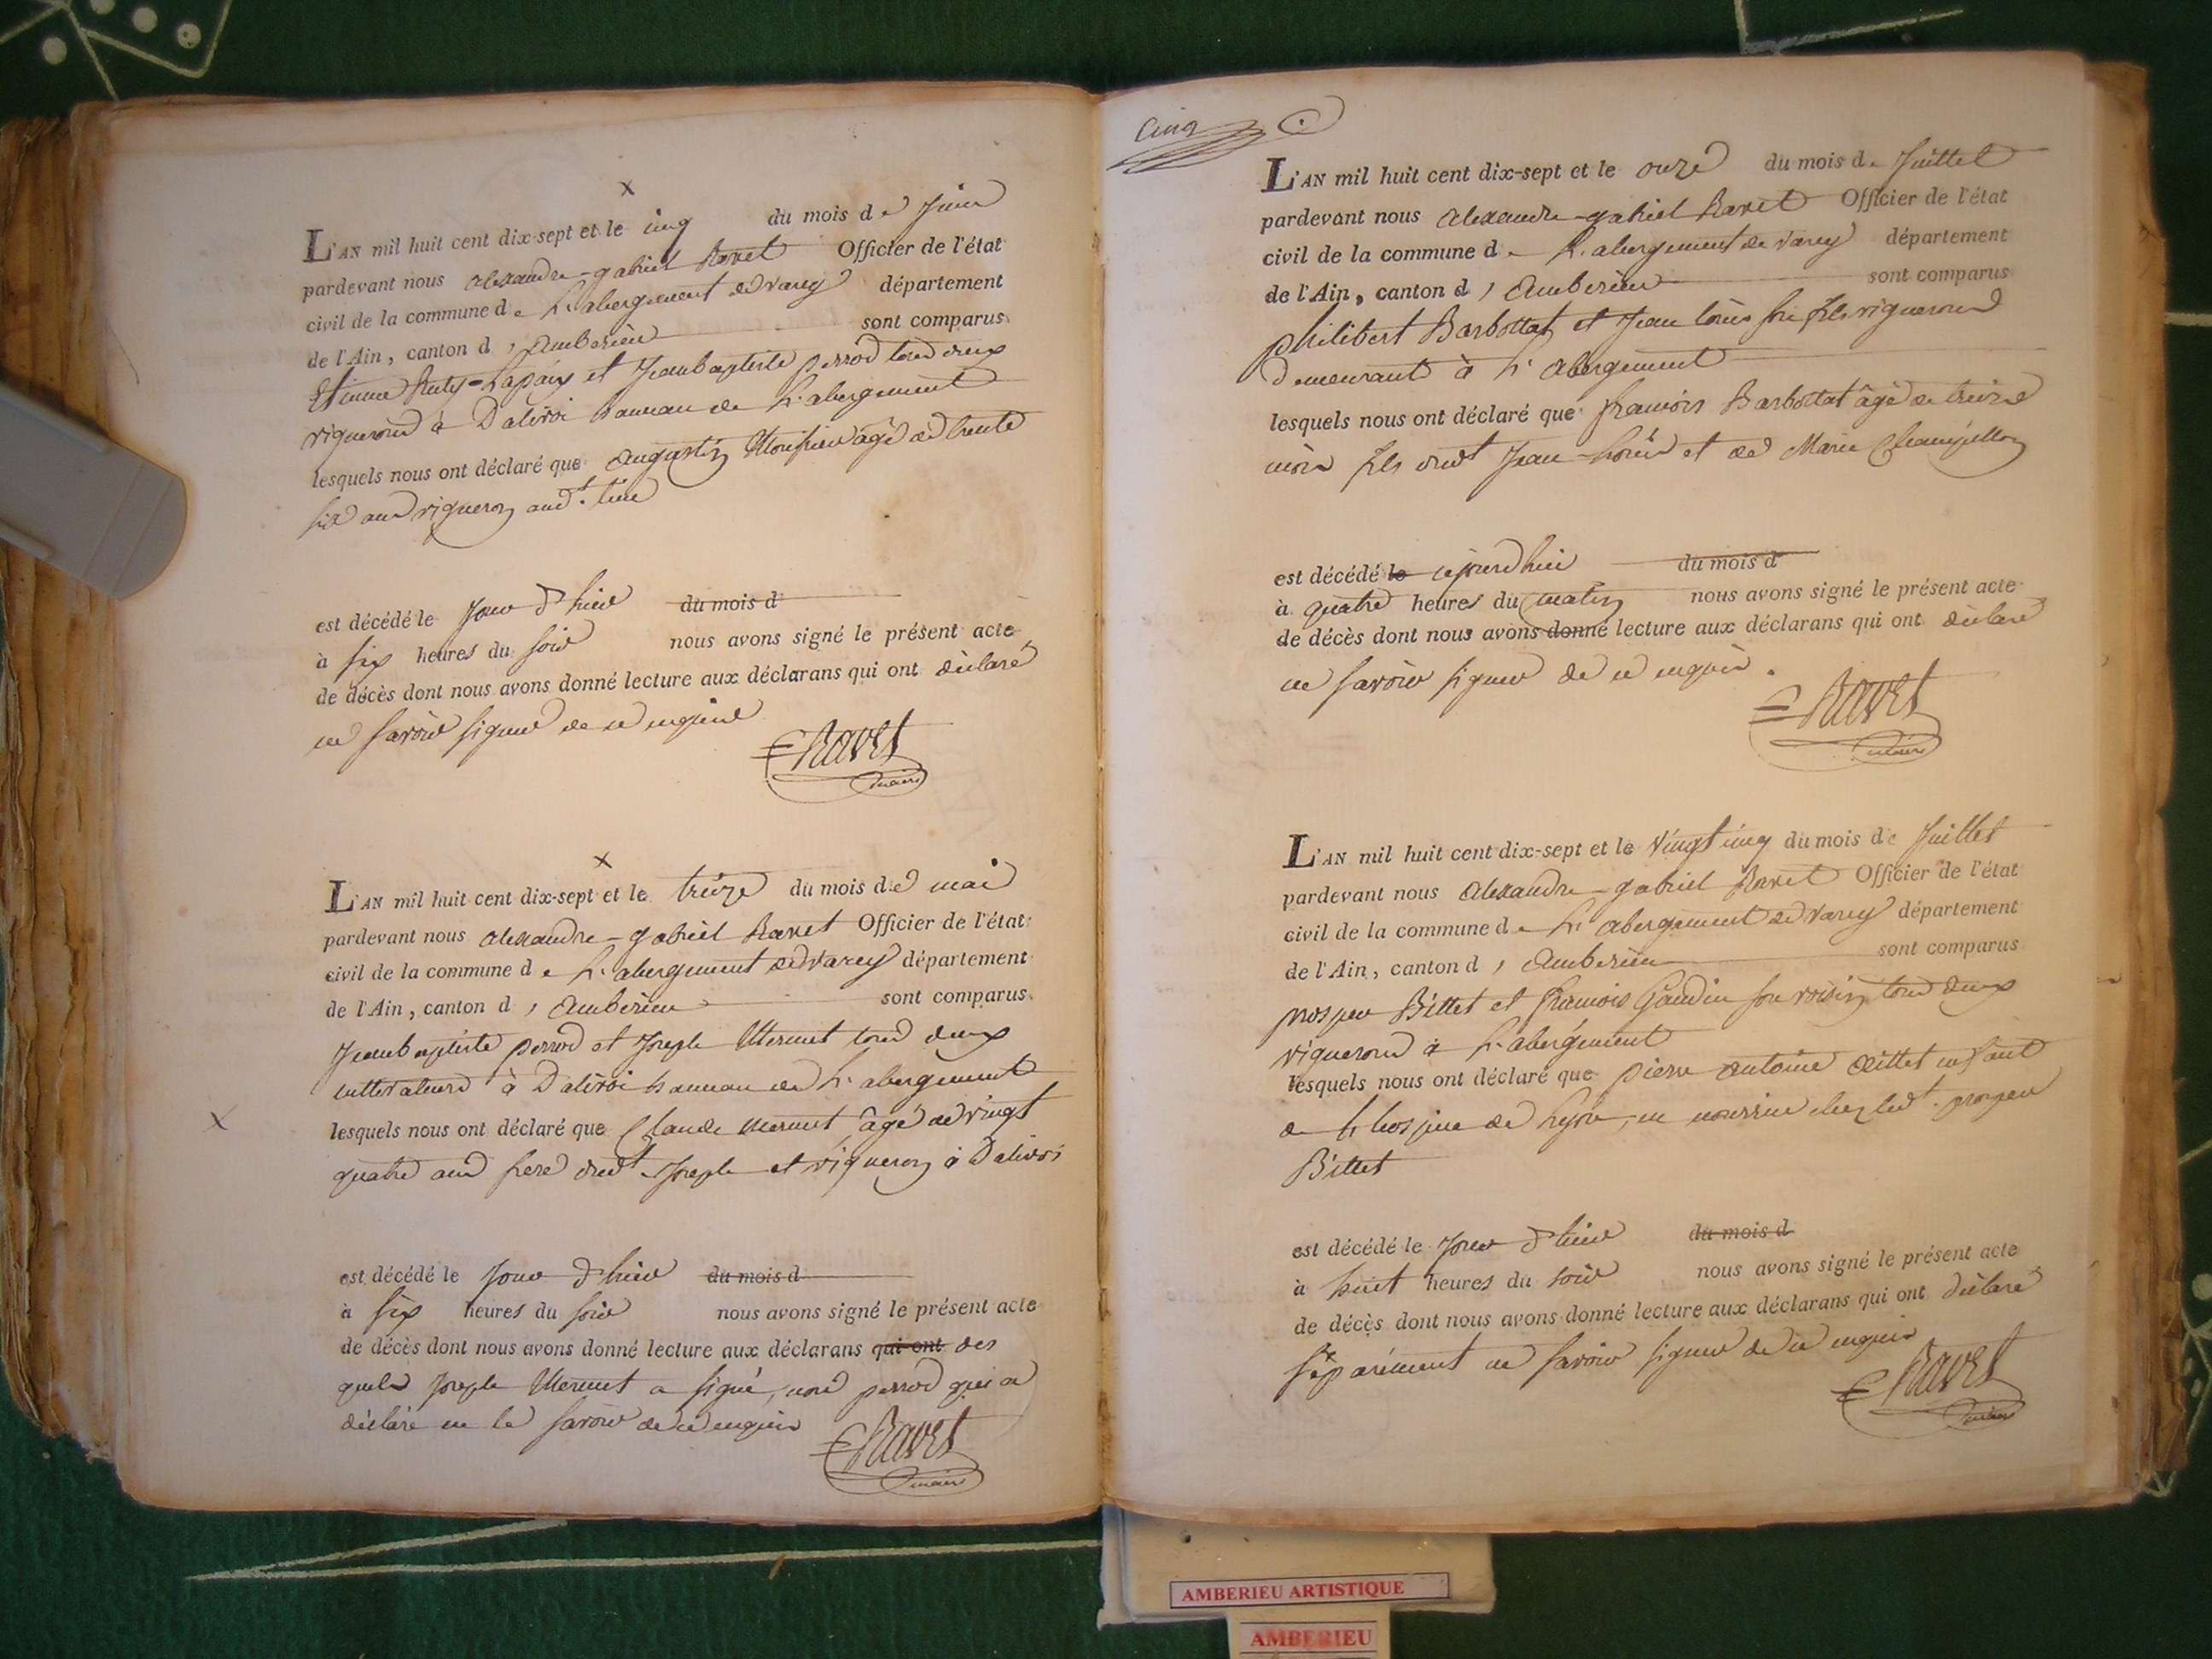 x
L'AN mil huit cent dix-sept et le cinq du mois de Juin
pardevant nous alexandre-gabriel Ravet Officier de l'état
civil de la commune de L'abergement de Varey département
de l'Ain, canton d'Amberieu sont comparus
Etienne Lapaix et Jeanbaptiste perrod tous deux
vignerons à Dalivoi hameau de L'abergement
lesquels nous ont déclaré que augustin Monfieu âgé de trente
six ans vigneron aud.t lieu
est décédé le Jour d'hier du mois d
à six heures du soir nous avons signé le présent acte
de décès dont nous avons donné lecture aux déclarans qui ont déclaré
ne savoir signer de ce enquis
Ravet
maire
x
L'AN mil huit cent dix-sept et le treize du mois de mai
pardevant nous alexandre-gabriel Ravet Officier de l'état
civil de la commune de L'abergement de Varey département
de l'Ain, canton d'Amberieu sont comparus
Jeanbaptiste perrod et Joseph Mermet tous deux
cultivateurs à Dalivoi hameau de L'abergement
x
lesquels nous ont déclaré que Claude Mermet âgé de vingt
quatre ans frere dud.t Joseph et vigneron à Dalivoi
est décédé le Jour d'hier du mois d
à six heures du soir nous avons signé le présent acte
de décès dont nous avons donné lecture aux déclarans qui ont des
quels Joseph Mermet a signé, non perrod qui a
déclaré ne le savoir de ce enquis
Ravet
maire
Cinq
L'AN mil huit cent dix-sept et le onze du mois de Juillet
pardevant nous alexandre-gabriel Ravet Officier de l'état
civil de la commune de L'abergement de Varey département
de l'Ain, canton d'Amberieu sont comparus
philibert Barbottat et Jean Louis son fils vignerons
demeurant à L'abergement
lesquels nous ont déclaré que francois Barbottat âgé de treize
mois fils dud.t Jean-Louis et de Marie Champillon
est décédé le cejourdhui du mois d
à quatre heures du matin nous avons signé le présent acte
de décès dont nous avons donné lecture aux déclarans qui ont déclaré
ne savoir signer de ce enquis.
Ravet
maire
L'AN mil huit cent dix-sept et le vingt cinq du mois de Juillet
pardevant nous alexandre-gabriel Ravet Officier de l'état
civil de la commune de L'abergement de Varey département
de l'Ain, canton d'Amberieu sont comparus
prosper Billet et francois Gaudin son voisin tous deux
vignerons à L'abergement
lesquels nous ont déclaré que pierre antoine enfant
de L'hospice de Lyon, en nourrice chez led.t prosper
Billet
est décédé le Jour d'hier du mois d
à huit heures du soir nous avons signé le présent acte
de décès dont nous avons donné lecture aux déclarans qui ont déclaré
séparément ne savoir signer de ce enquis
Ravet
maire
AMBERIEU ARTISTIQUE
AMBERIEU